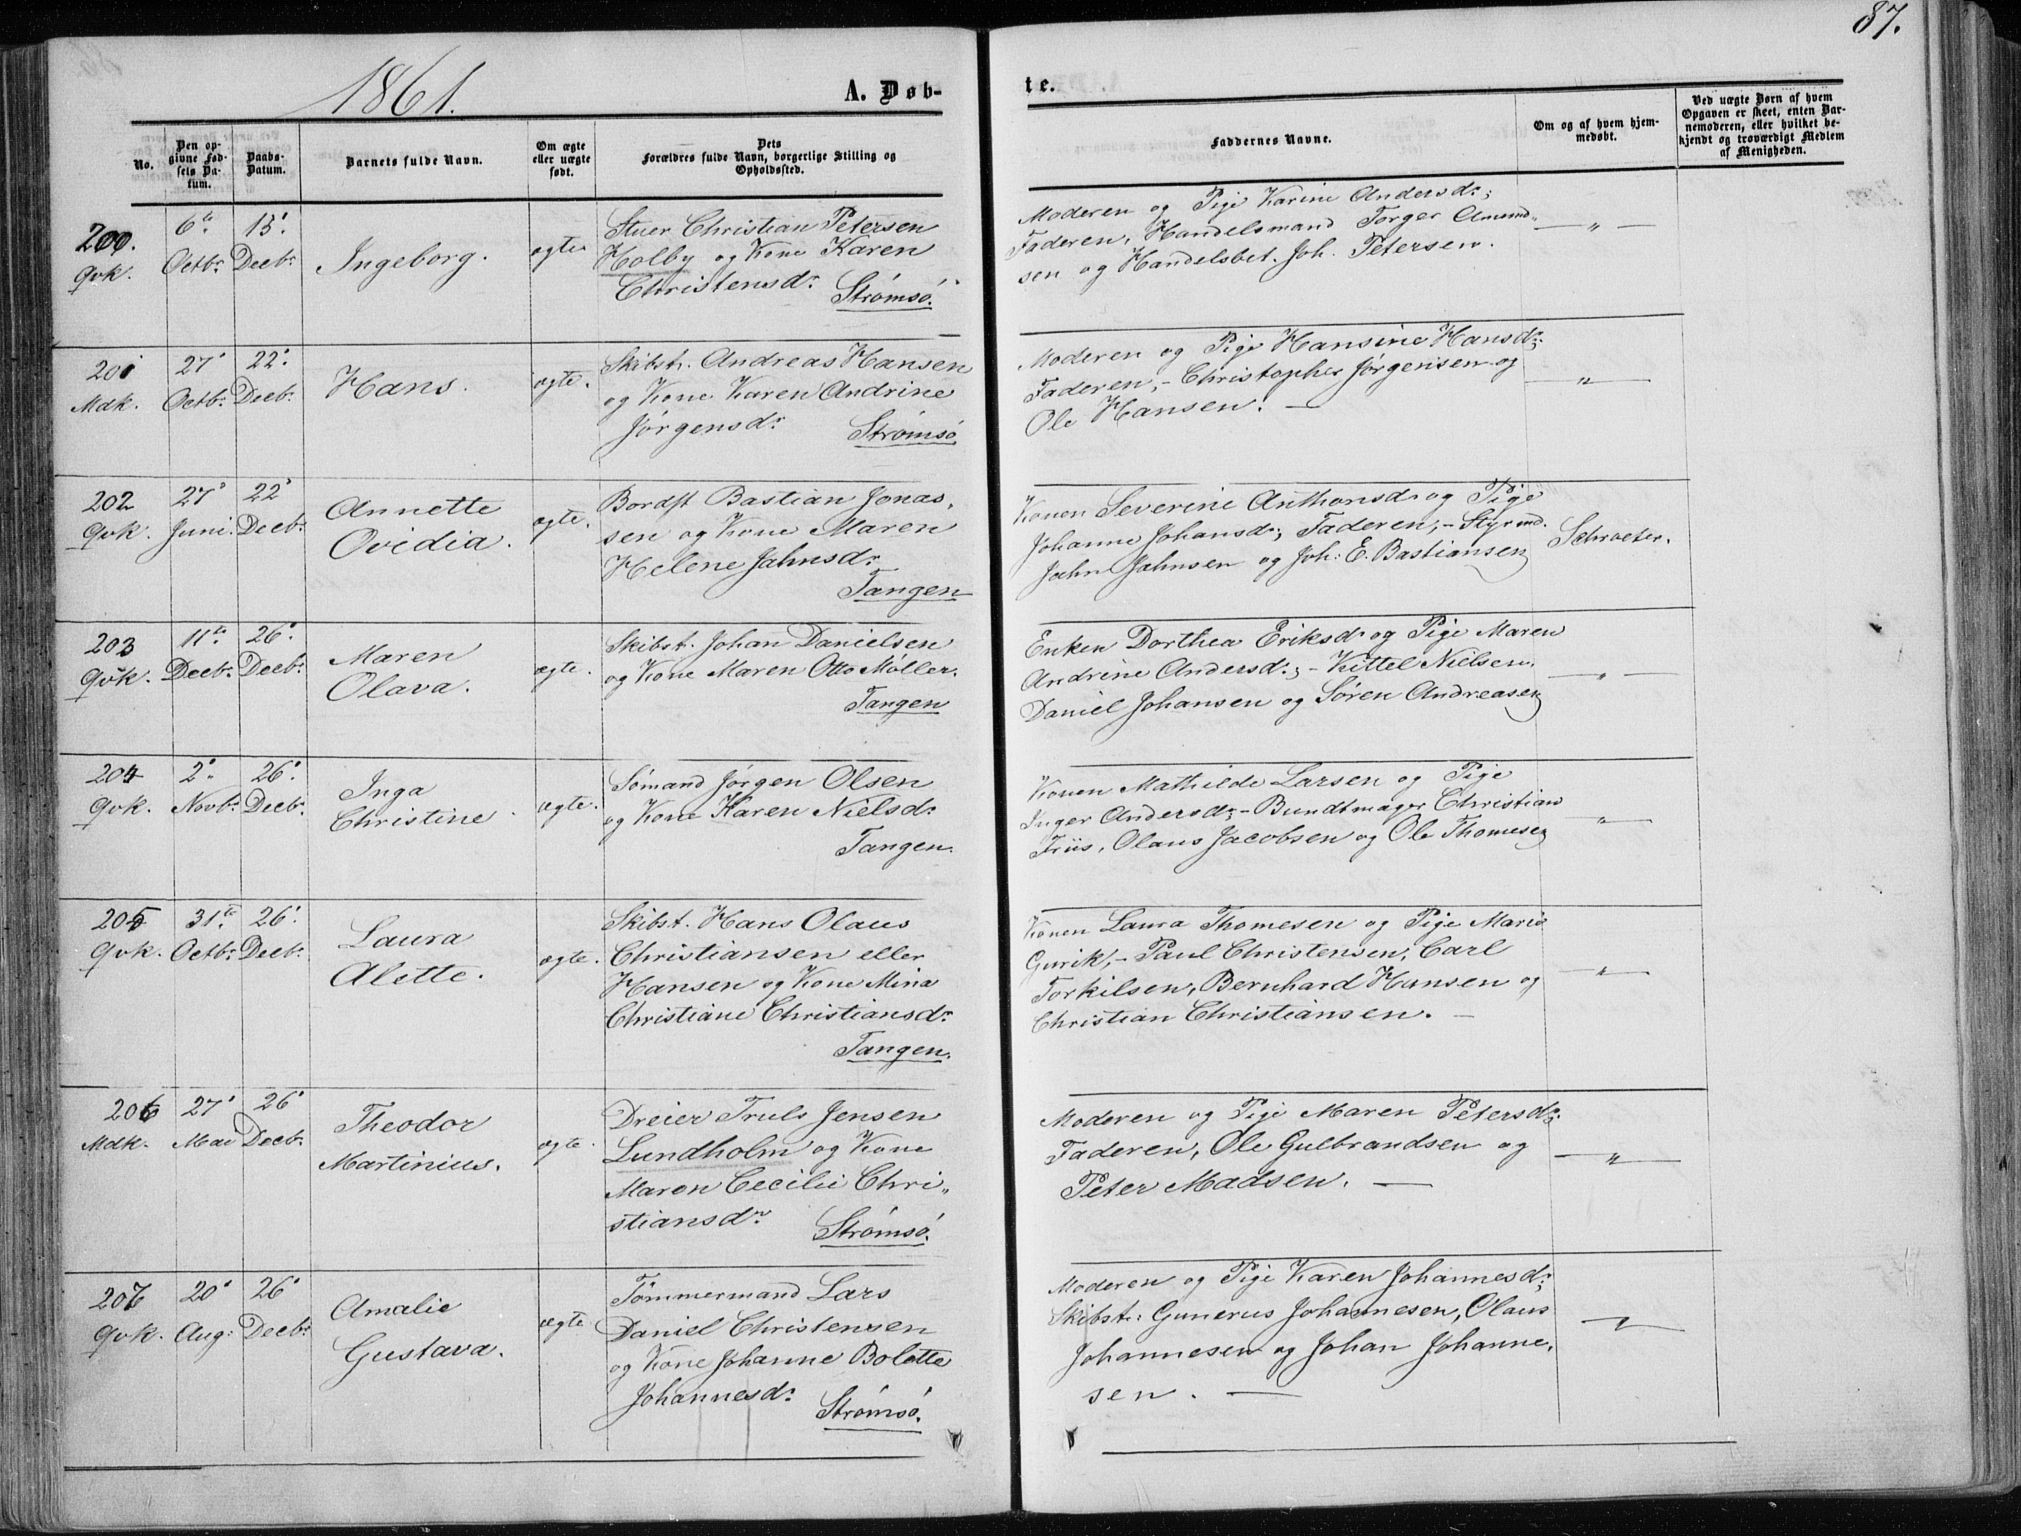 87.
1861.
A. Døb-
te.
No.
Den op-
givne Fød-
sels Da-
tum.
Daabs-
Datum.
Barnets fulde Navn.
Om ægte
eller uægte
født.
Dets
Forældres fulde Navn, borgerlige Stilling og
Opholdssted.
Faddernes Navne.
Om og af hvem hjem-
medøbt.
Ved uægte Børn af hvem
Opgaven er skeet, enten Bar-
nemoderen, eller hvilket be-
kjendt og troværdigt Medlem
af Menigheden.
200.
Qvk.
6te
Octbr.
Decbr.
Ingeborg.
ægte
Stuer Christian Petersen
Holby og Kone Karen
Christensdr.
Strømsö.
Moderen og Pige Karine Andersdr;
Faderen, Handelsmand Torger Amund-
sen og Handelsbet. Joh. Petersen.
— „ —
201
Mdk.
27'
Octbr.
22'
Decbr.
Hans.
ægte.
Skibst. Andreas Hansen
og Kone Karen Andrine
Jørgensdr.
Strömsö
Moderen og Pige Hansine Hansdr;
Faderen, – Christopher Jørgensen og
Ole Hansen. —
— „ —
202
Qvk.
27'
Juni.
22'
Decbr.
Annette
Ovidia.
ægte.
Bordst Bastian Jonas-
sen og Kone Maren
Helene Jahnsdr.
Tangen
Konen Severine Anthonsdr og Pige
Johanne Johansdr; Faderen, – Styrmd.
Jahn Jahnsen og Joh: E. Bastiansen
Schroeter.
203
Qvk.
11te
Decbr.
26'
Decbr.
Maren
Olava.
ægte.
Skibst. Johan Danielsen
og Kone Maren Otto Möller.
Tangen
Enken Dorthea Eriksdr og Pige Maren
Andrine Andersdr; – Kittel Nielsen.
Daniel Johansen og Søren Andreasen
— „ —
204
Qvk.
2'
Novbr.
26'
Decbr.
Inga
Christine.
ægte.
Sömand Jørgen Olsen
og Kone Karen Nielsdr
Tangen.
Konen Mathilde Larsen og Pige
Inger Andersdr; – Bundtmager Christian
Friis, Olaus Jacobsen og Ole Thomesen
— „ —
205
Qvk.
31te
Octbr.
26'
Decbr.
Laura
Alette.
ægte.
Skibst. Hans Olaus
Christiansen eller
Hansen og Kone Mina
Christiane Christiansdr
Tangen.
Konen Laura Thomesen og Pige Marie
Gurik, – Paul Christensen, Carl
Torkilsen, Bernhard Hansen og
Christian Christiansen. –
— „ —
206
Mdk.
27'
Mai
26'
Decbr.
Theodor
Martinius.
ægte.
Dreier Truls Jensen
Lundholm og Kone
Maren Cecilie Chri-
stiansdr
Strømsö.
Moderen og Pige Maren Petersdr;
Faderen, Ole Gulbrandsen og
Peter Madsen. —
— „ —
207
Qvk.
20'
Aug:
26'
Decbr.
Amalie
Gustava.
ægte
Tømmermand Lars
Daniel Christensen
og Kone Johanne Bolette
Johannesdr.
Strømsö.
Moderen og Pige Karen Johannesdr;
Skibst: Gunerus Johannesen, Olaus
Johannesen og Johan Johanne-
sen. —
— „ —